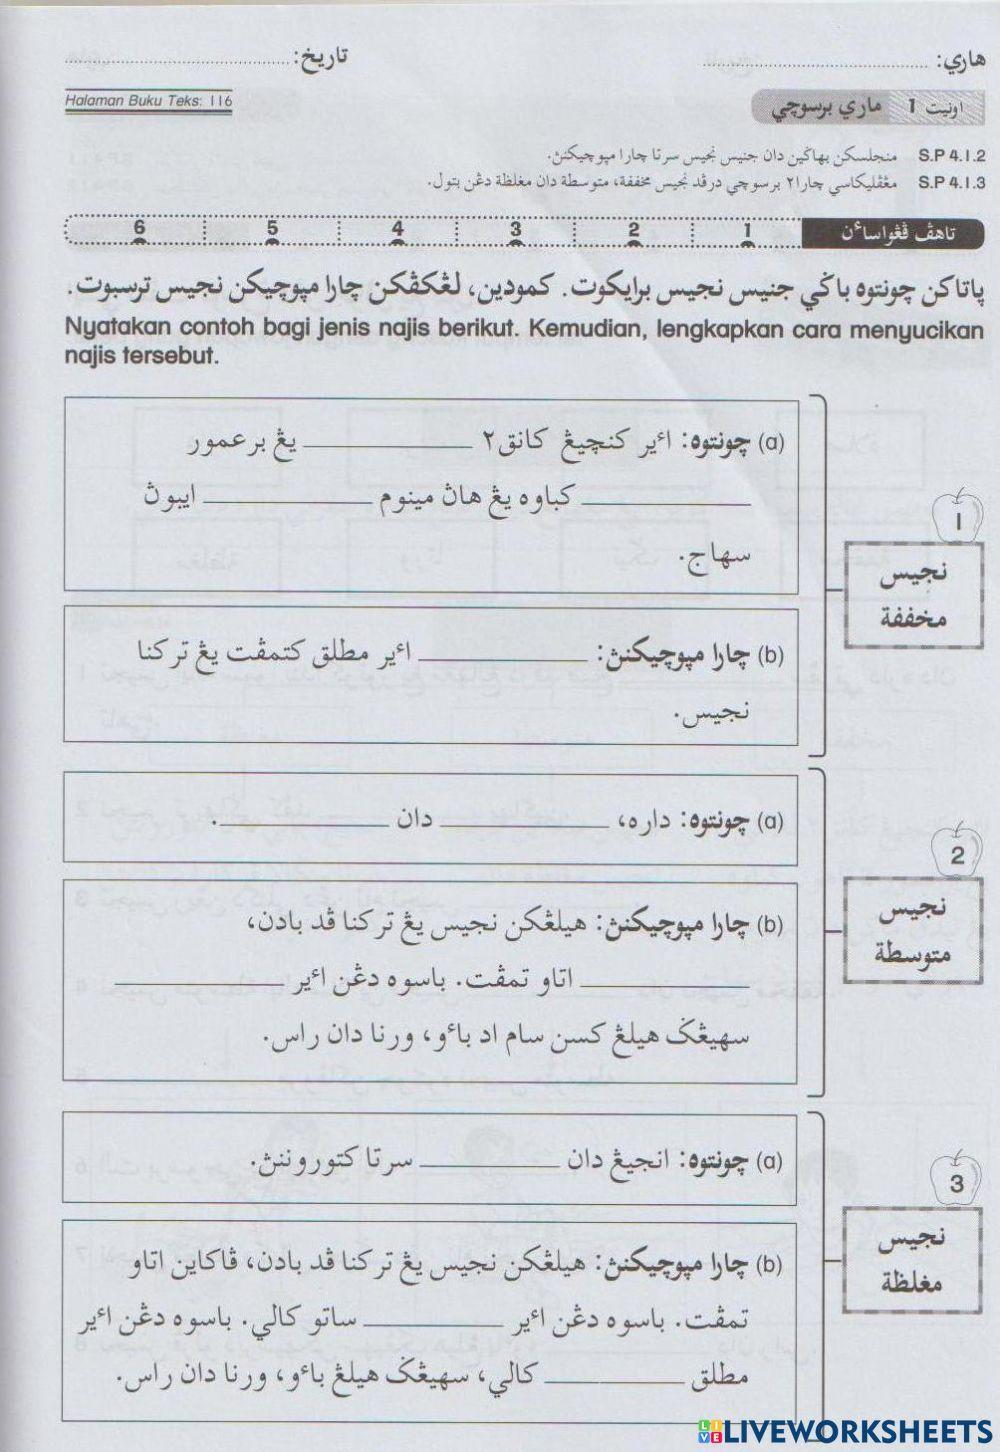 هاري: ........................ تاريخ: ........................
اونيت 1 ماري برسوچي Halaman Buku Teks: 116
S.P 4.1.2 منجلسكن بهاڬين دان جنيس نجيس سرتا چارا مپوچيكنڽ.
S.P 4.1.3 مڠڤليكاسي چارا٢ برسوچي درڤد نجيس مخففة، متوسطة دان مغلظة دڠن بتول.
تاهڤ ڤڠواساٴن 1 2 3 4 5 6
ڽاتاكن چونتوه باڬي جنيس نجيس برايكوت. كمودين، لڠكڤكن چارا مپوچيكن نجيس ترسبوت.
Nyatakan contoh bagi jenis najis berikut. Kemudian, lengkapkan cara menyucikan
najis tersebut.
1
نجيس
مخففة
(a) چونتوه: اٴير كنچيڠ كانق٢ __________ يڠ برعمور
__________ كباوه يڠ هاڽ مينوم __________ ايبوڽ
سهاج.
(b) چارا مپوچيكنڽ: __________ اٴير مطلق كتمڤت يڠ تركنا
نجيس.
2
نجيس
متوسطة
(a) چونتوه: داره، __________ دان __________.
(b) چارا مپوچيكنڽ: هيلڠكن نجيس يڠ تركنا ڤد بادن،
__________ اتاو تمڤت. باسوه دڠن اٴير __________
سهيڠݢ هيلڠ كسن سام اد باٴو، ورنا دان راس.
3
نجيس
مغلظة
(a) چونتوه: انجيڠ دان __________ سرتا كتوروننڽ.
(b) چارا مپوچيكنڽ: هيلڠكن نجيس يڠ تركنا ڤد بادن، ڤاكاين اتاو
تمڤت. باسوه دڠن اٴير __________ ساتو كالي. باسوه دڠن اٴير
مطلق __________ كالي، سهيڠݢ هيلڠ باٴو، ورنا دان راس.
LIVE LIVEWORKSHEETS